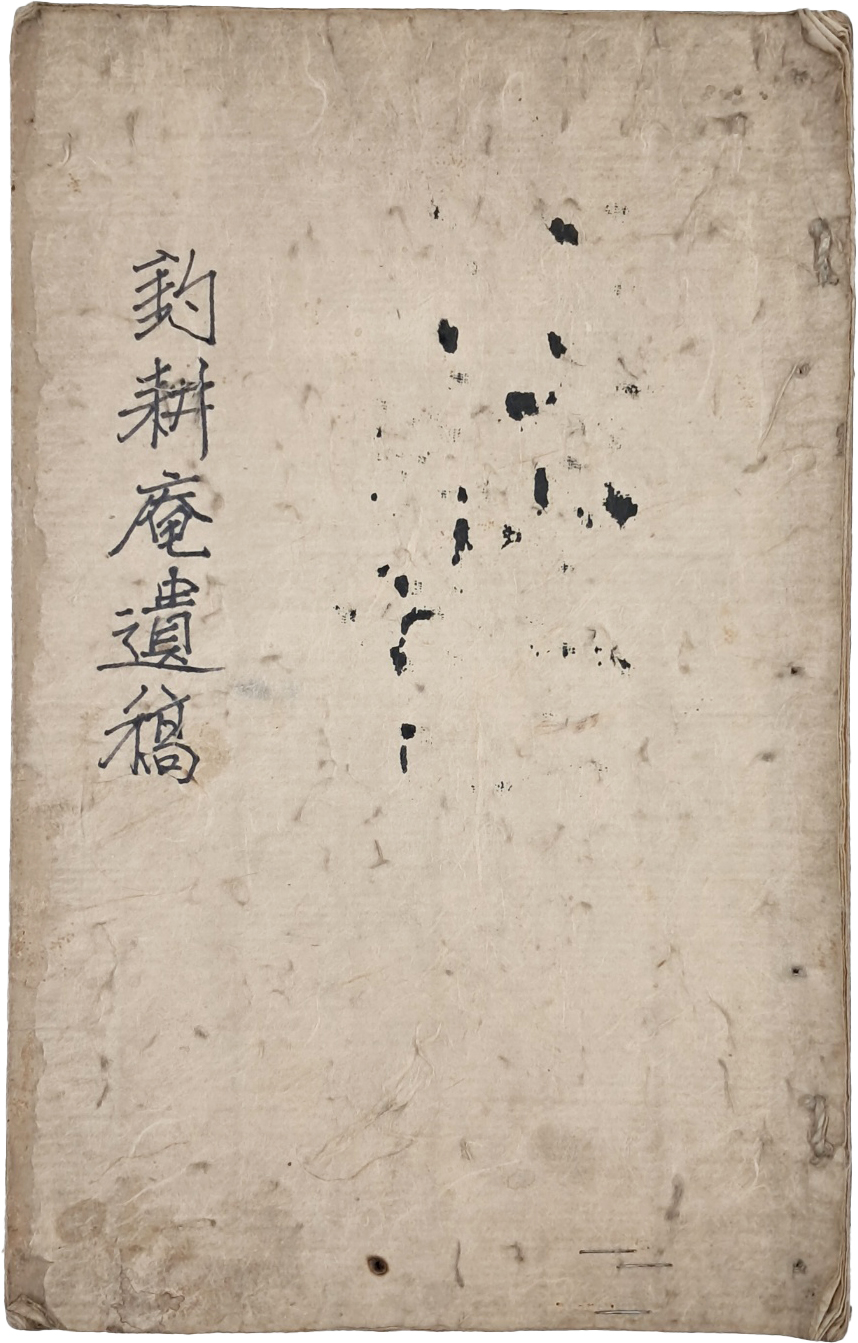 釣耕庵遺稿